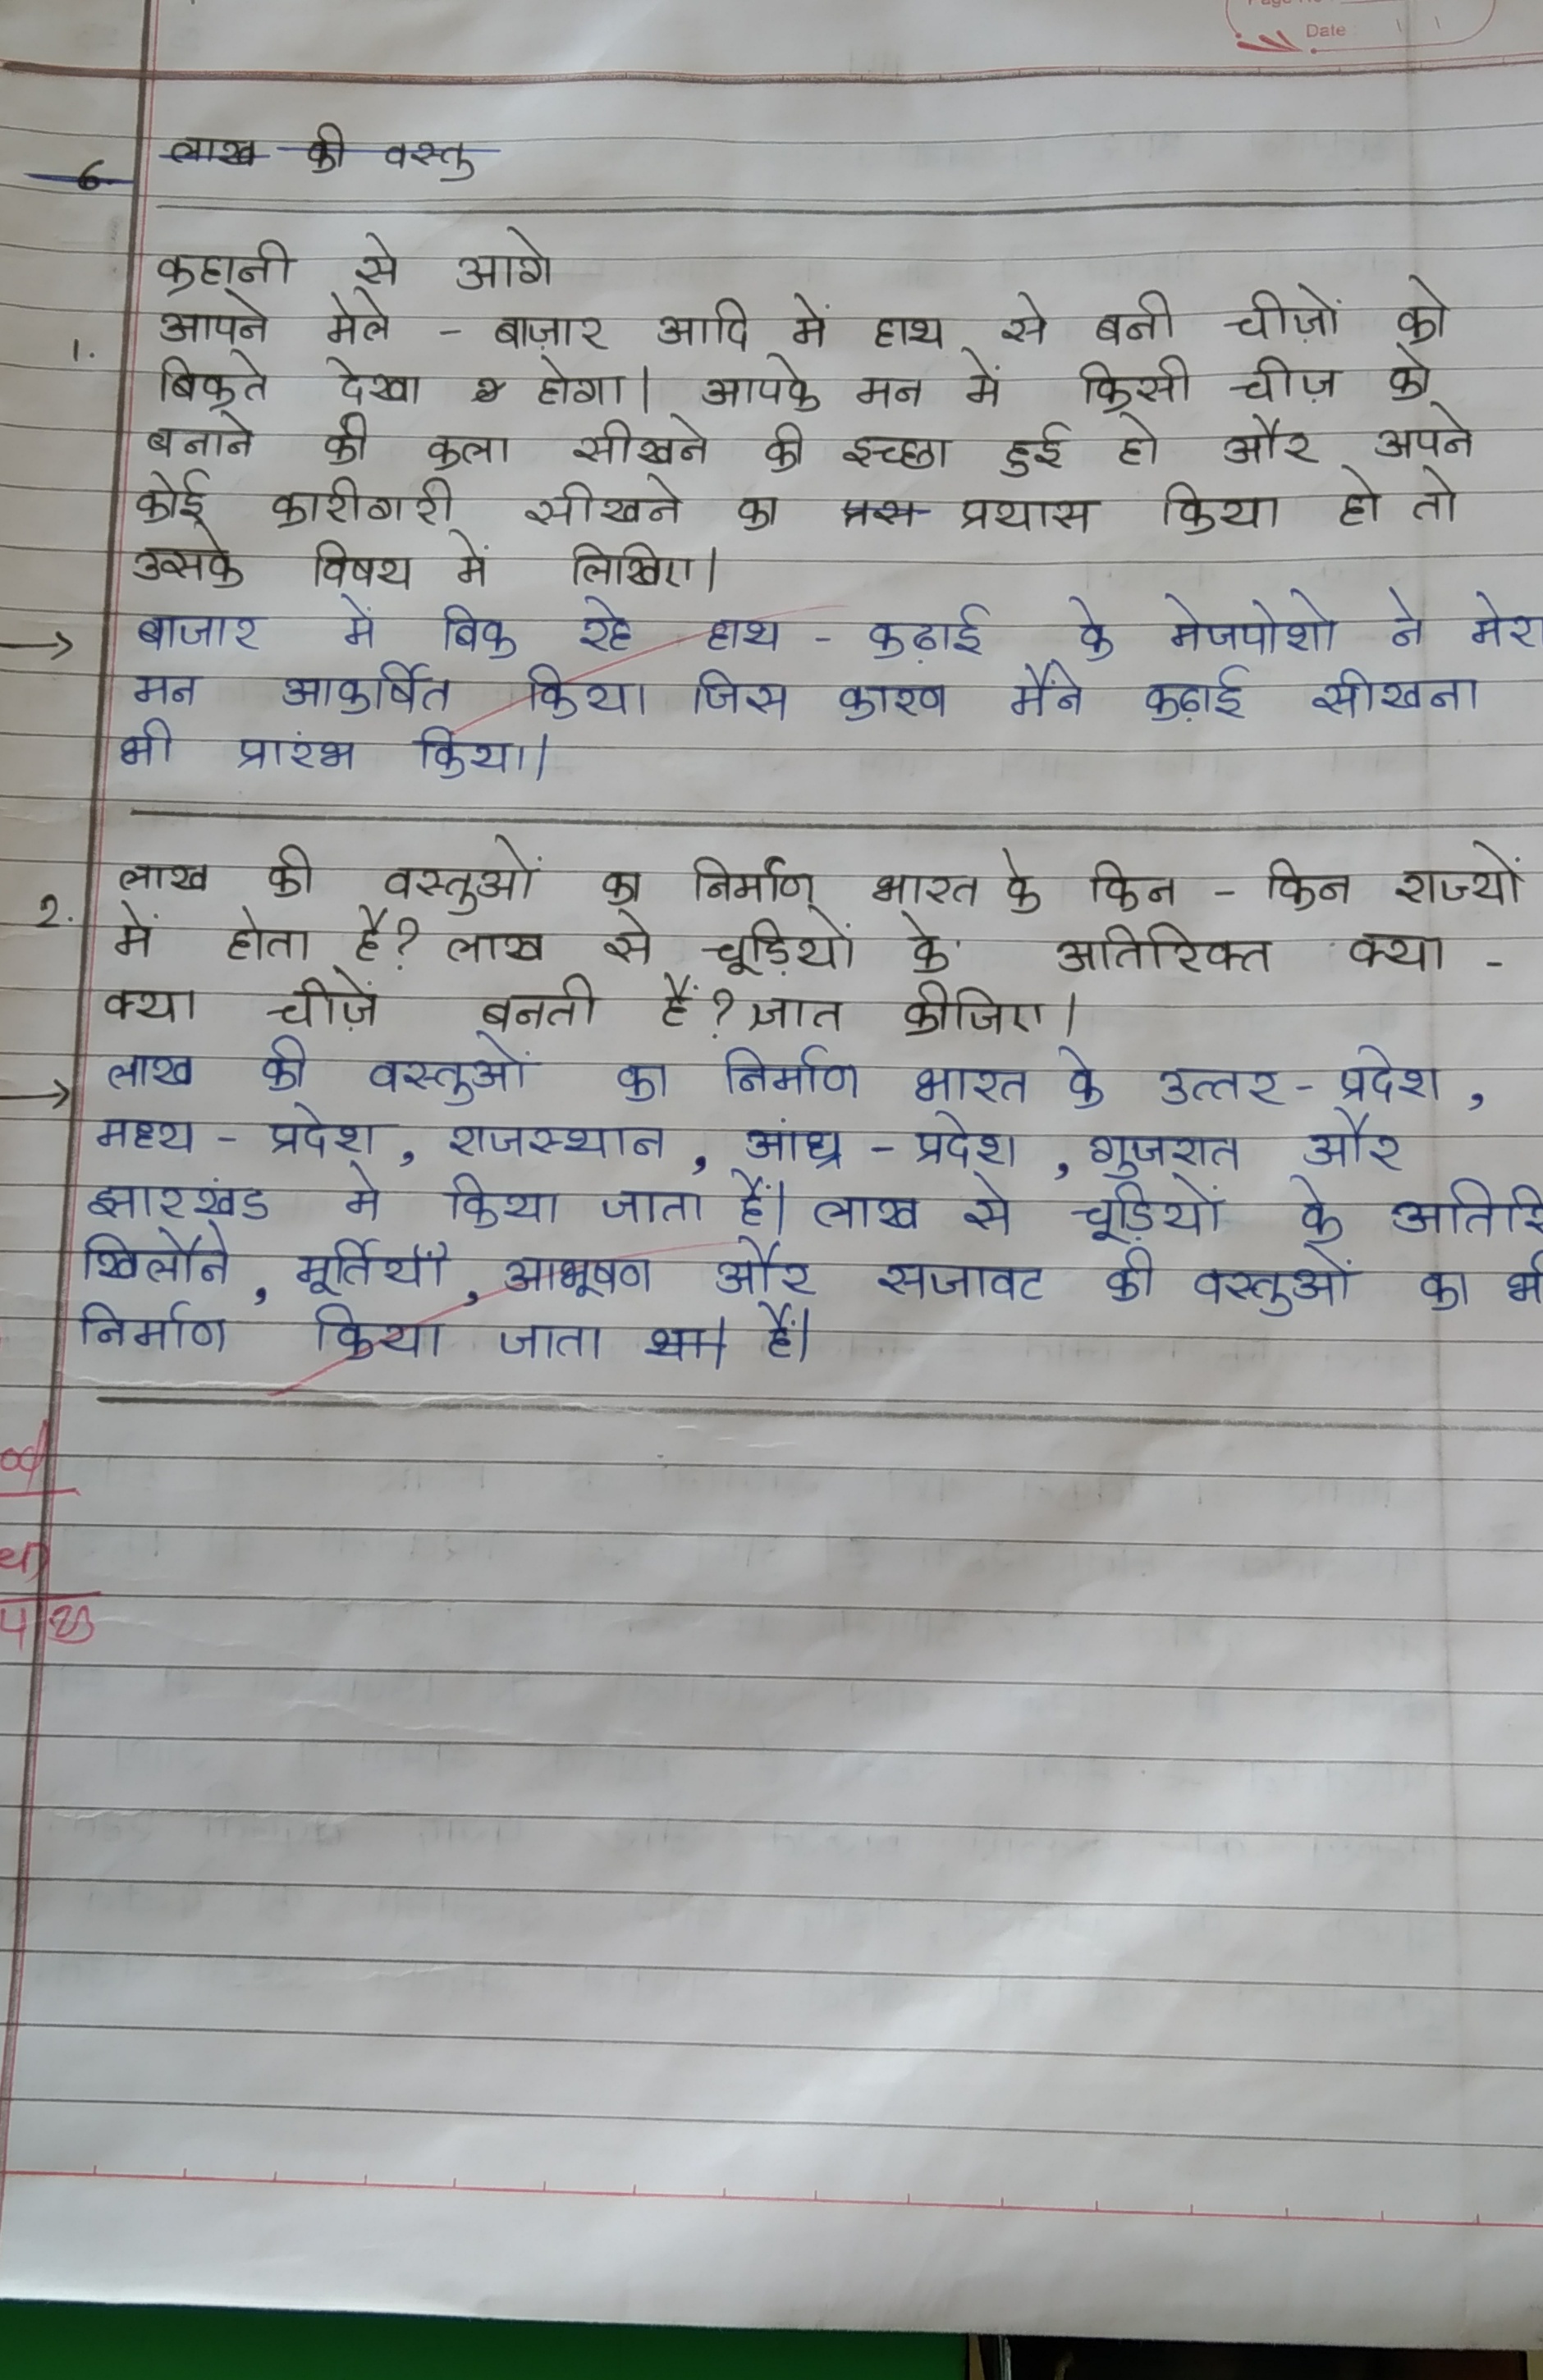 Date
6. लाख की वस्तु
कहानी से आगे
1. आपने मेले - बाज़ार आदि में हाथ से बनी चीज़ों को
बिकते देखा होगा। आपके मन में किसी चीज़ को
बनाने की कला सीखने की इच्छा हुई हो और अपने
कोई कारीगरी सीखने का प्रयास किया हो तो
उसके विषय में लिखिए।
→ बाजार में बिक रहे हाथ - कढ़ाई के मेजपोशो ने मेरा
मन आकर्षित किया जिस कारण मैंने कढ़ाई सीखना
भी प्रारंभ किया।
2. लाख की वस्तुओं का निर्माण भारत के किन - किन राज्यों
में होता है? लाख से चूड़ियों के अतिरिक्त क्या -
क्या चीज़ें बनती हैं? ज्ञात कीजिए।
→ लाख की वस्तुओं का निर्माण भारत के उत्तर - प्रदेश,
मध्य - प्रदेश, राजस्थान, आंध्र - प्रदेश, गुजरात और
झारखंड मे किया जाता हैं। लाख से चूड़ियों के अतिरि
खिलौने, मूर्तियाँ, आभूषण और सजावट की वस्तुओं का भी
निर्माण किया जाता हैं।